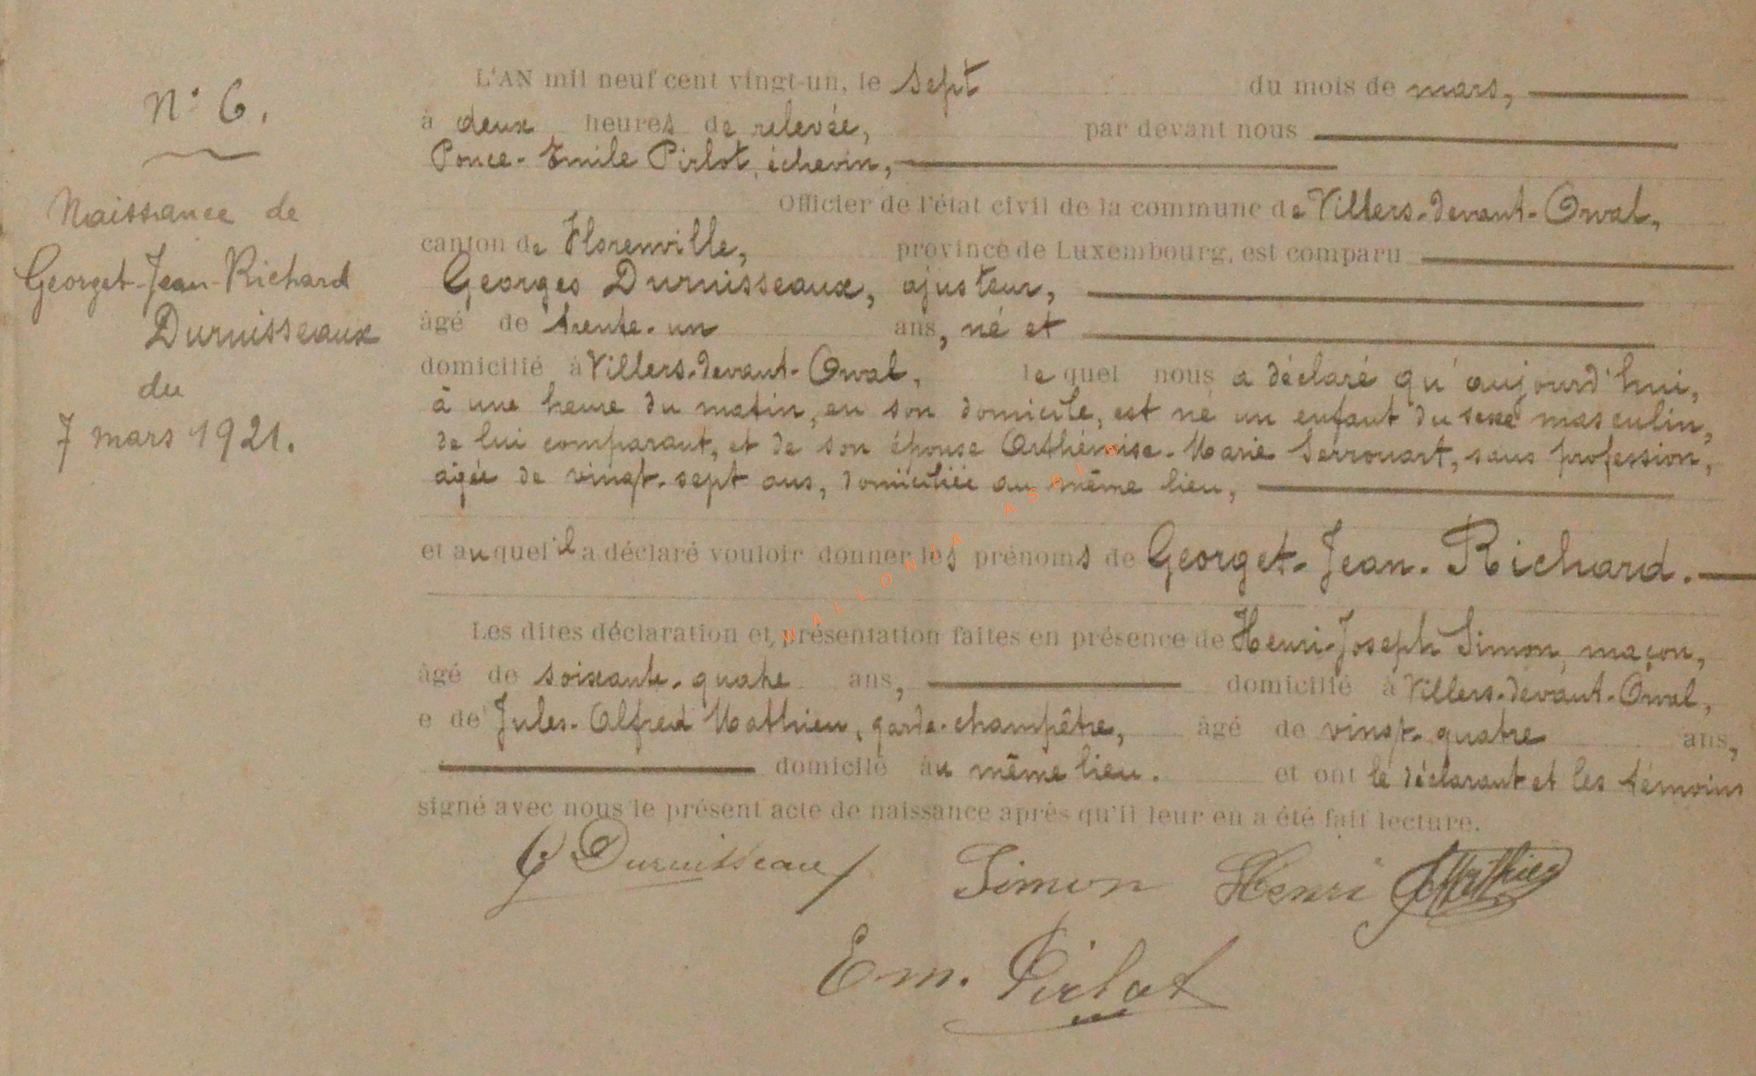 N° 6.
Naissance de
Georget-Jean-Richard
Duruisseaux
du
7 mars 1921.
L'AN mil neuf cent vingt-un, le sept du mois de mars,
à deux heures de relevée, par devant nous
Ponce-Emile Pirlot, échevin,
Officier de l'état civil de la commune de Villers-devant-Orval,
canton de Florenville, province de Luxembourg, est comparu
Georges Duruisseaux, ajusteur,
âgé de trente-un ans, né et
domicilié à Villers-devant-Orval, lequel nous a déclaré qu'aujourd'hui,
à une heure du matin, en son domicile, est né un enfant du sexe masculin,
de lui comparant, et de son épouse Arthémise-Marie Serrouart, sans profession,
âgée de vingt-sept ans, domiciliée au même lieu,
et auquel il a déclaré vouloir donner les prénoms de Georget-Jean-Richard.
Les dites déclaration et présentation faites en présence de Henri-Joseph Simon, maçon,
âgé de soixante-quatre ans, domicilié à Villers-devant-Orval,
e de Jules-Alfred Mathieu, garde-champêtre, âgé de vingt-quatre ans,
domicilé au même lieu. et ont le déclarant et les témoins
signé avec nous le présent acte de naissance après qu'il leur en a été fait lecture.
G Duruisseaux Simon Henri JMathieu
Em. Pirlot
WALLONIA ASBL